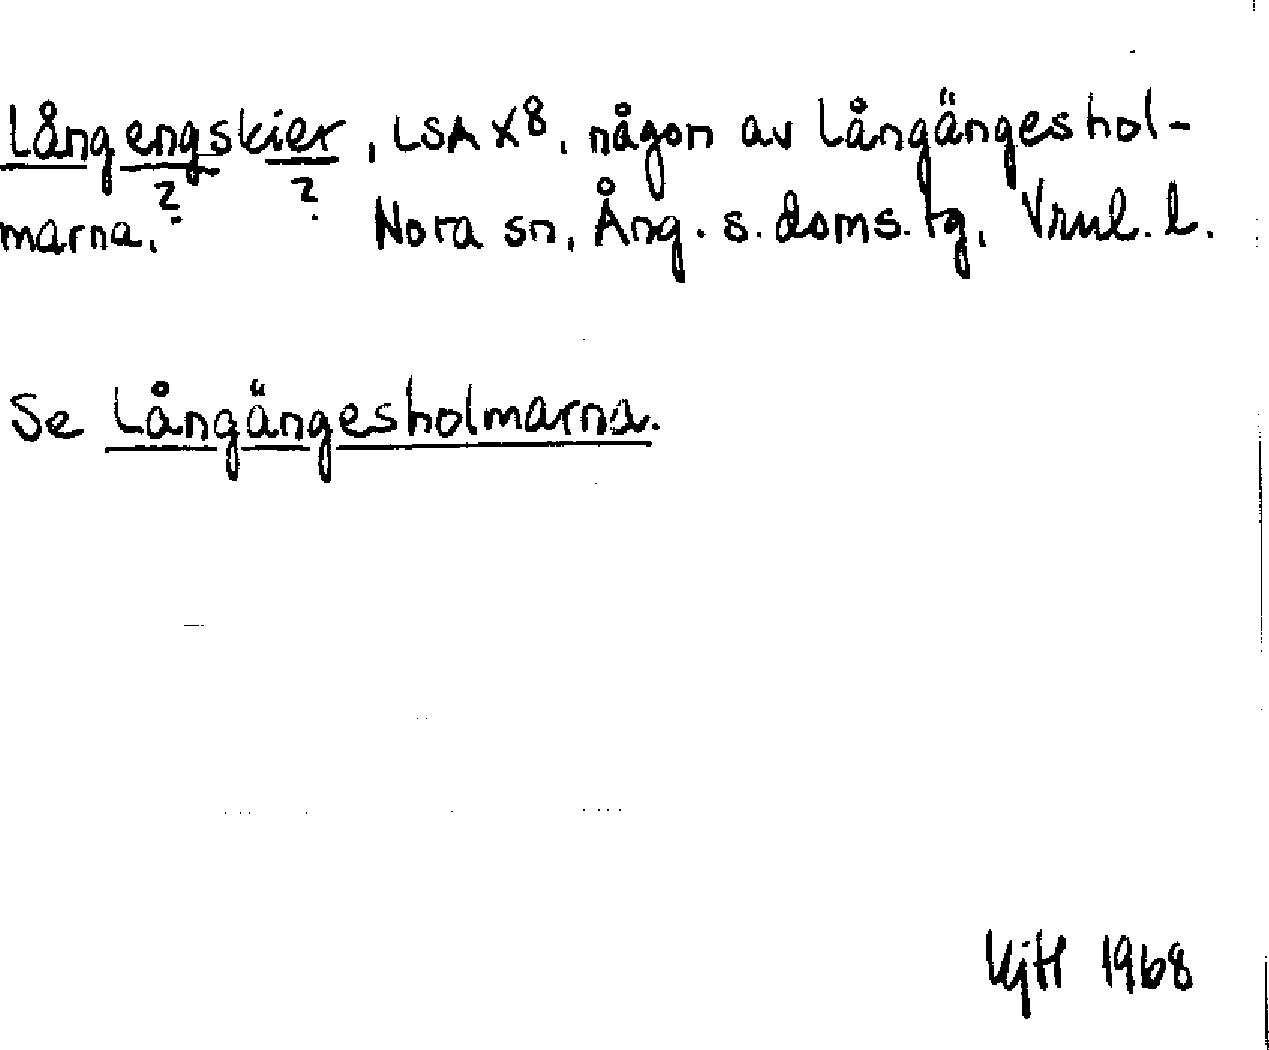 Långengskier, LSA X8, någon av Långängeshol-
? ?
marna. Nora sn, Ång. s. doms. tg, Vrnl. l.
Se Långängesholmarna.
KjH 1968